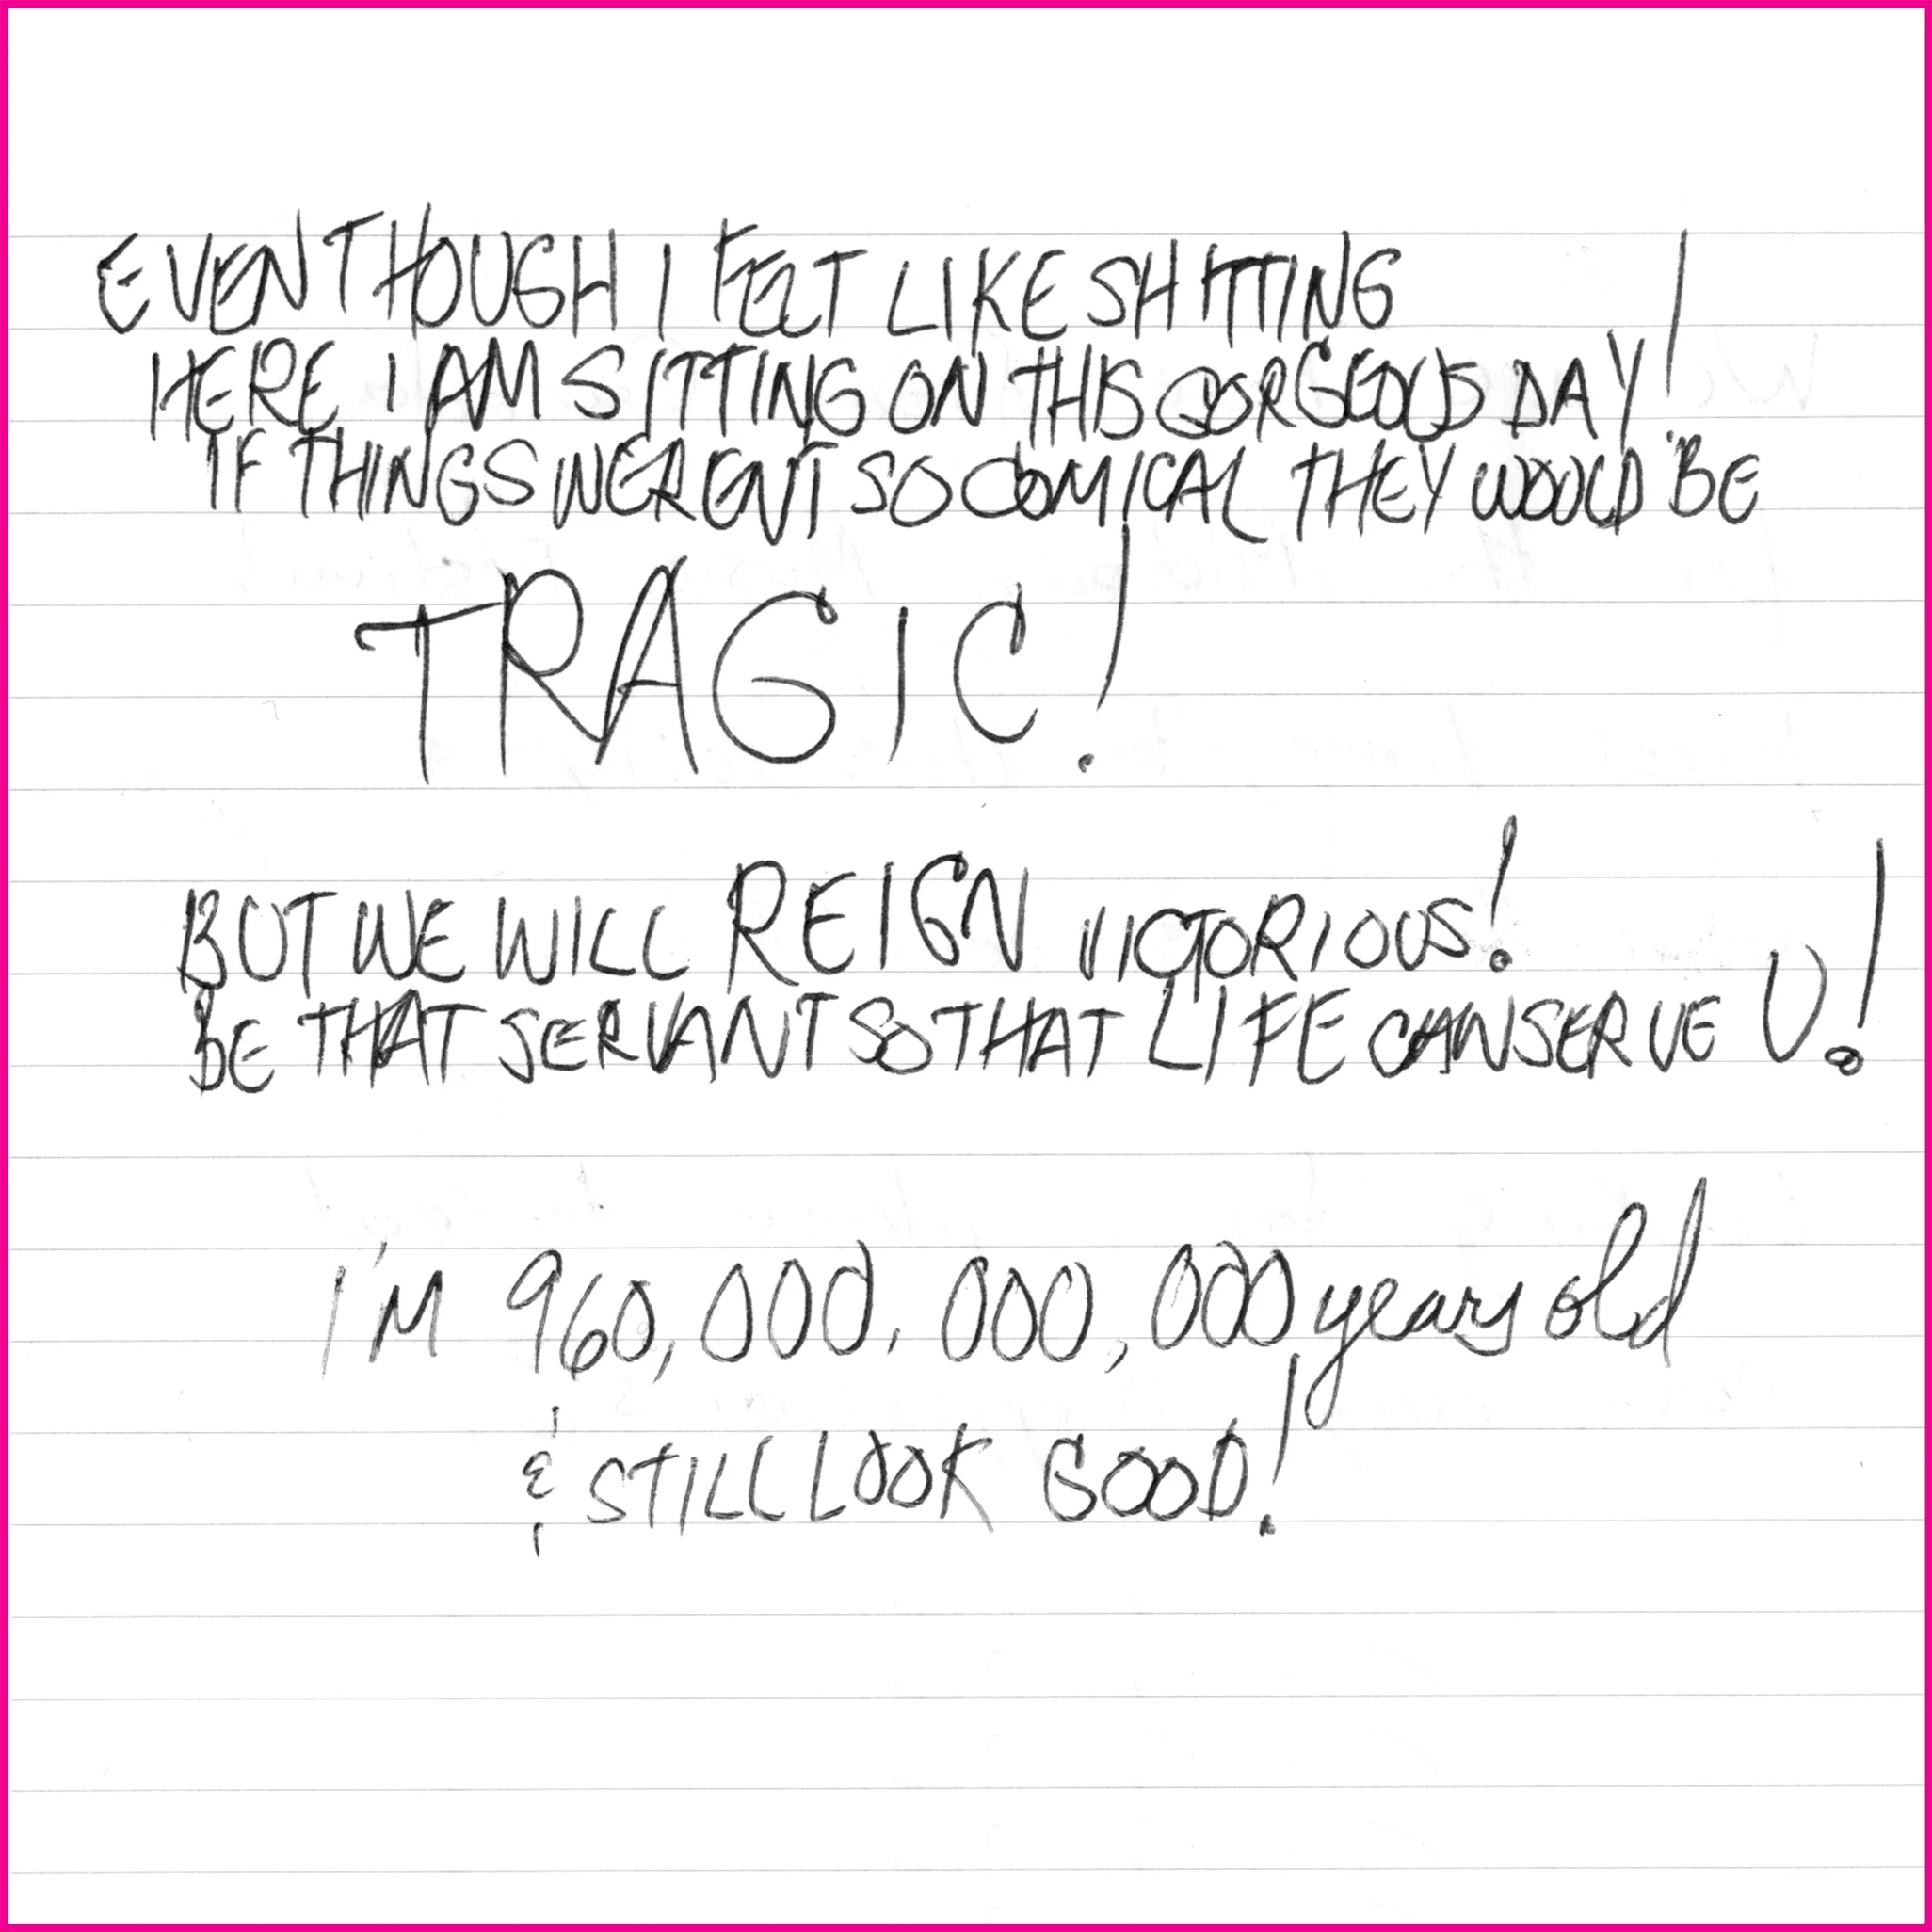 EVEN THOUGH I FELT LIKE SHITTING
HERE I AM SITTING ON THIS GORGEOUS DAY!
IF THINGS WERENT SO COMICAL THEY WOULD BE
TRAGIC!
BUT WE WILL REIGN VICTORIOUS!
BE THAT SERVANT SO THAT LIFE CAN SERVE U!
I'M 960,000,000,000 years old
& STILL LOOK GOOD!